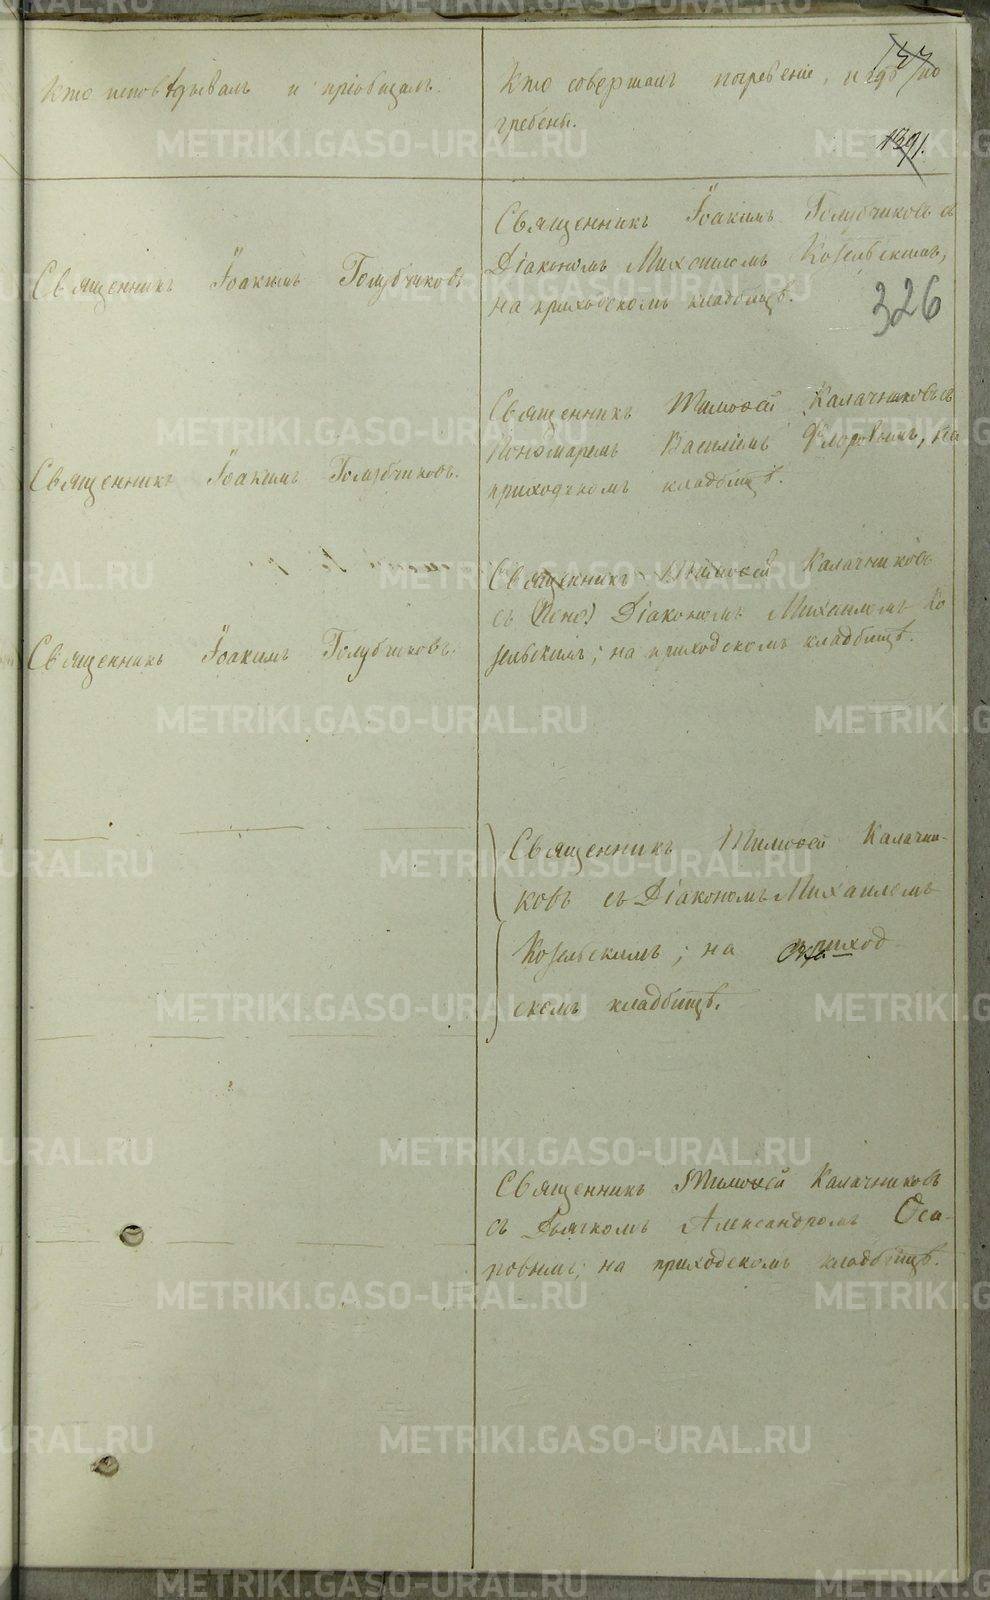 Кто исповѣдывалъ и пріобщалъ.
Кто совершалъ погребеніе, и гдѣ по
гребены.
326
Священникъ Іоакимъ Голубчиковъ
Священникъ Іоакимъ Голубчиковъ съ
Діакономъ Михаиломъ Козельскимъ,
на приходскомъ кладбищѣ.
Священникъ Іоакимъ Голубчиковъ.
Священникъ Тимоѳей Калачниковъ съ
Пономаремъ Василіемъ Флоровымъ, на
приходскомъ кладбищѣ.
Священникъ Іоакимъ Голубчиковъ.
Священникъ Тимоѳей Калачниковъ
съ Діакономъ Михаиломъ Ко
зельскимъ; на приходскомъ кладбищѣ.
Священникъ Тимоѳей Калачни-
ковъ съ Діакономъ Михаиломъ
Козельскимъ; на приход
скомъ кладбищѣ.
Священникъ Тимоѳей Калачниковъ
съ Дьячкомъ Александромъ Оса-
ровымъ; на приходскомъ кладбищѣ.
METRIKI.GASO-URAL.RU